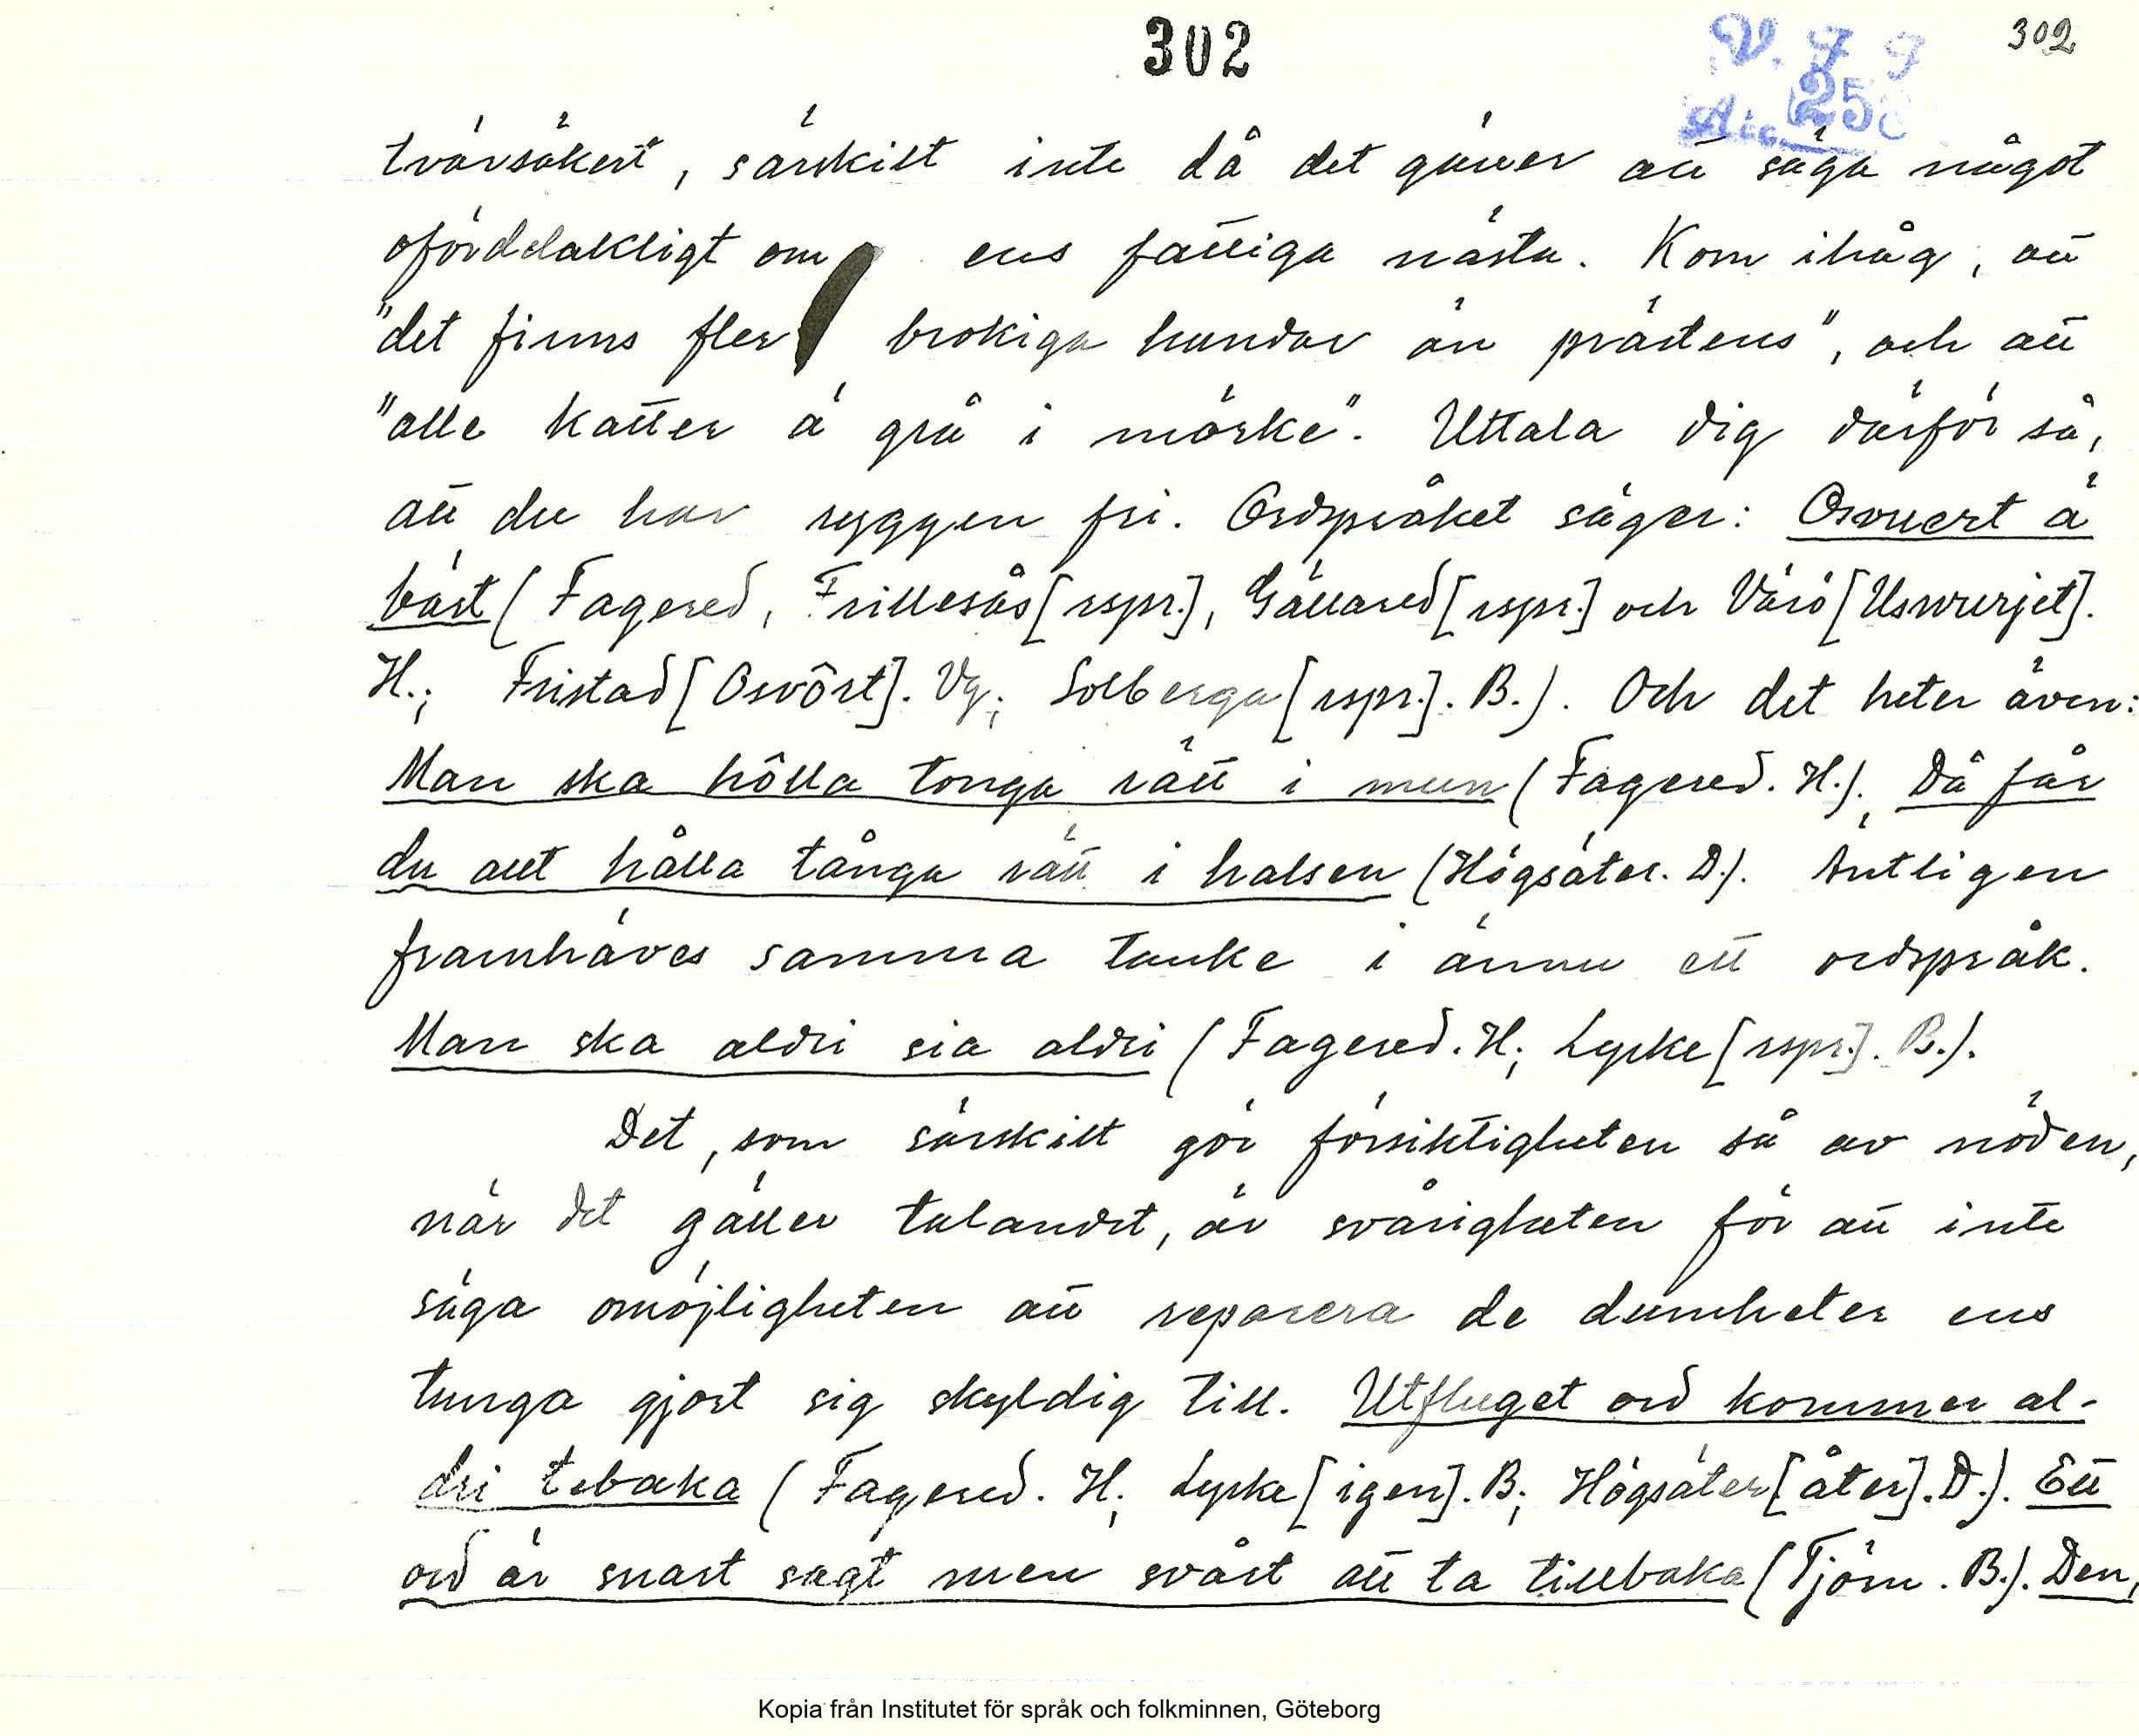 302
302
V. F. F
Acc. 258
tvärsäkert, särskilt inte då det gäller att säga något
ofördelaktigt om ens fattiga nästa. Kom ihåg, att
"det finns fler brokiga hundar än prästens", och att
"alle katter ä grå i mörke". Uttala dig därför så,
att du har ryggen fri. Ordspråket säger: Osvuert ä
bäst (Fagered, Frillesås [rspr.], Gällared [rspr.] och Värö [Uswurjet].
H.; Fristad [Osvôrt]. Vg; Solberga [rspr.]. B.). Och det heter även:
Man ska hôlla tonga rätt i mun (Fagered. H.). Då får
du allt hålla tånga rätt i halsen (Högsäter. D.). Äntligen
framhäves samma tanke i ännu ett ordspråk.
Man ska aldri sia aldri (Fagered. H; Lycke [rspr.]. B.).
Det, som särskilt gör försiktigheten så av nöden,
när det gäller talandet, är svårigheten för att inte
säga omöjligheten att reparera de dumheter ens
tunga gjort sig skyldig till. Utfluget ord kommer al-
dri tebaka (Fagered. H; Lycke [igen]. B; Högsäter [åter]. D.). Ett
ord är snart sagt men svårt att ta tillbaka (Tjörn. B.). Den,
Kopia från Institutet för språk och folkminnen, Göteborg